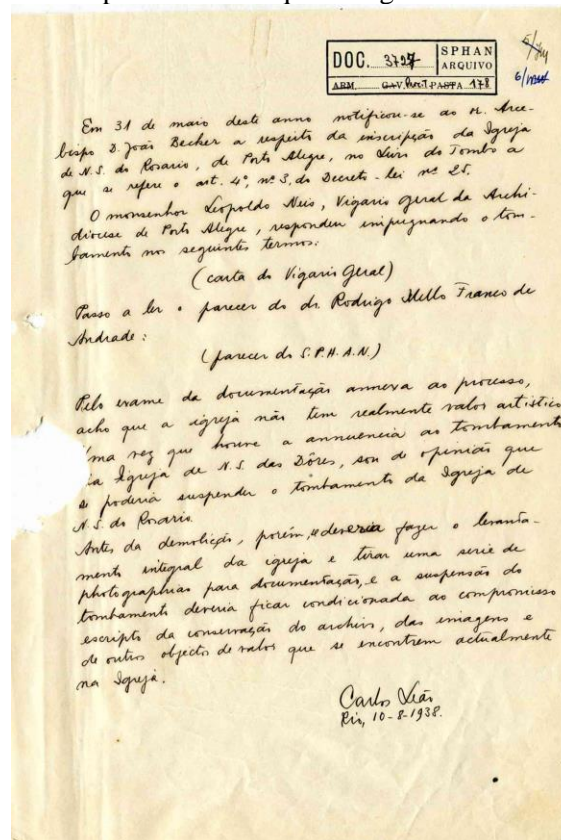 DOC. 3797 SPHAN
ARQUIVO
ARM. GAV. PASTA 178
Em 31 de maio deste anno notificou-se ao sr. Arce-
bispo D. João Becher a respeito da inscripção da Igreja
de N.S. do Rosario, de Porto Alegre, no Livro do Tombo a
que se refere o art. 4º, nº 3, do Decreto-lei nº 25.
O monsenhor Leopoldo Neis, Vigario Geral da Archi-
diocese de Porto Alegre, respondeu impugnando o tom-
bamento nos seguintes termos:
(carta do Vigario Geral)
Passo a ler o parecer do dr. Rodrigo Mello Franco de
Andrade:
(parecer do S.P.H.A.N.)
Pelo exame da documentação annexa ao processo,
acho que a igreja não tem realmente valor artistico
Uma vez que houve a annuencia ao tombamento
da Igreja de N.S. das Dôres, sou de opinião que
se poderia suspender o tombamento da Igreja de
N.S. do Rosario.
Antes da demolição, porém, se deveria fazer o levanta-
mento integral da igreja e tirar uma serie de
photographias para documentação, e a suspensão do
tombamento deveria ficar condicionada ao compromisso
escripto da conservação do archivo, das imagens e
de outros objectos de valor que se encontrem actualmente
na Igreja.
Carlos Leão
Rio, 10-8-1938.